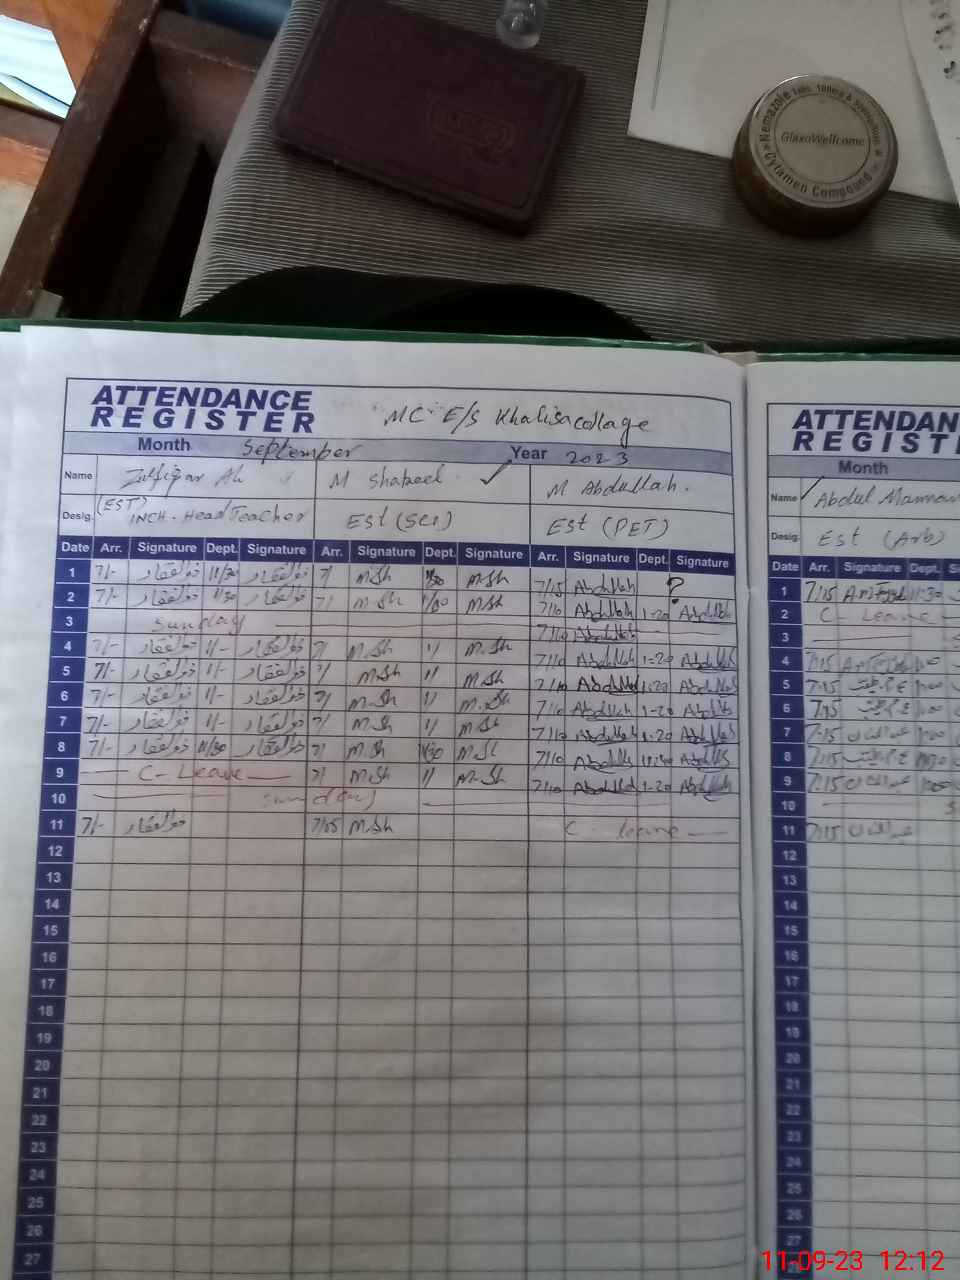 GlaxoWellcome
Cytamen Compound
ATTENDANCE
REGISTER
MC E/S Khalisa collage
Month September Year 2023
Name Zulfiqar Ali M Shabeel ✓ M Abdullah.
Desig. (EST) INCH. Head Teacher Est (SCI) Est (PET)
Date Arr. Signature Dept. Signature Arr. Signature Dept. Signature Arr. Signature Dept. Signature
1 7/- ذوالفقار 11/30 ذوالفقار 7/ M.Sh 11/30 M.Sh 7/15 Abdullah ?
2 7/- ذوالفقار 11/30 ذوالفقار 7/ M.Sh 1/00 M.Sh 7/10 Abdullah 1-20 Abdullah
3 Sunday 7/10 Abdullah
4 7/- ذوالفقار 1/- ذوالفقار 7/ M.Sh 1/ M.Sh 7/10 Abdullah 1-20 Abdullah
5 7/- ذوالفقار 1/- ذوالفقار 7/ M.Sh 1/ M.Sh 7/10 Abdullah 1-20 Abdullah
6 7/- ذوالفقار 1/- ذوالفقار 7/ M.Sh 1/ M.Sh 7/10 Abdullah 1-20 Abdullah
7 7/- ذوالفقار 1/- ذوالفقار 7/ M.Sh 1/ M.Sh 7/10 Abdullah 1-20 Abdullah
8 7/- ذوالفقار 11/30 ذوالفقار 7/ M.Sh 11/30 M.Sh 7/10 Abdullah Abdullah
9 C-Leave 7/ M.Sh 1/ M.Sh 7/10 Abdullah 1-20 Abdullah
10 Sunday
11 7/- ذوالفقار 7/05 M.Sh C-leave
12
13
14
15
16
17
18
19
20
21
22
23
24
25
26
27
ATTENDAN
REGIST
Month
Name Abdul Mannan
Desig. Est (Arb)
Date Arr. Signature Dept.
1 7:15 11:30
2 C-Leave
3
4 7:15
5 7:15
6 7:15
7 7:15
8 7:15
9 7:15
10
11 7:15
12
13
14
15
16
17
18
19
20
21
22
23
24
25
26
27
11-09-23 12:12